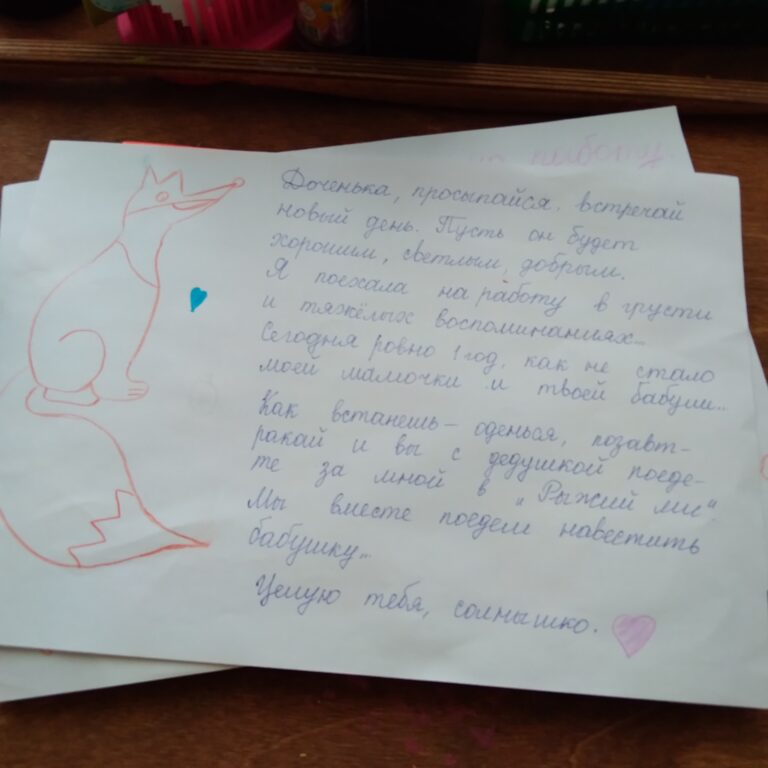 работу
Доченька, просыпайся, встречай
новый день. Пусть он будет
хорошим, светлым, добрым.
Я поехала на работу в грусти
и тяжёлых воспоминаниях...
Сегодня ровно 1 год, как не стало
моей мамочки и твоей бабули...
Как встанешь – оденься, позавт-
ракай и вы с дедушкой поеде-
те за мной в „Рыжий лис".
Мы вместе поедем навестить
бабушку...
Целую тебя, солнышко.